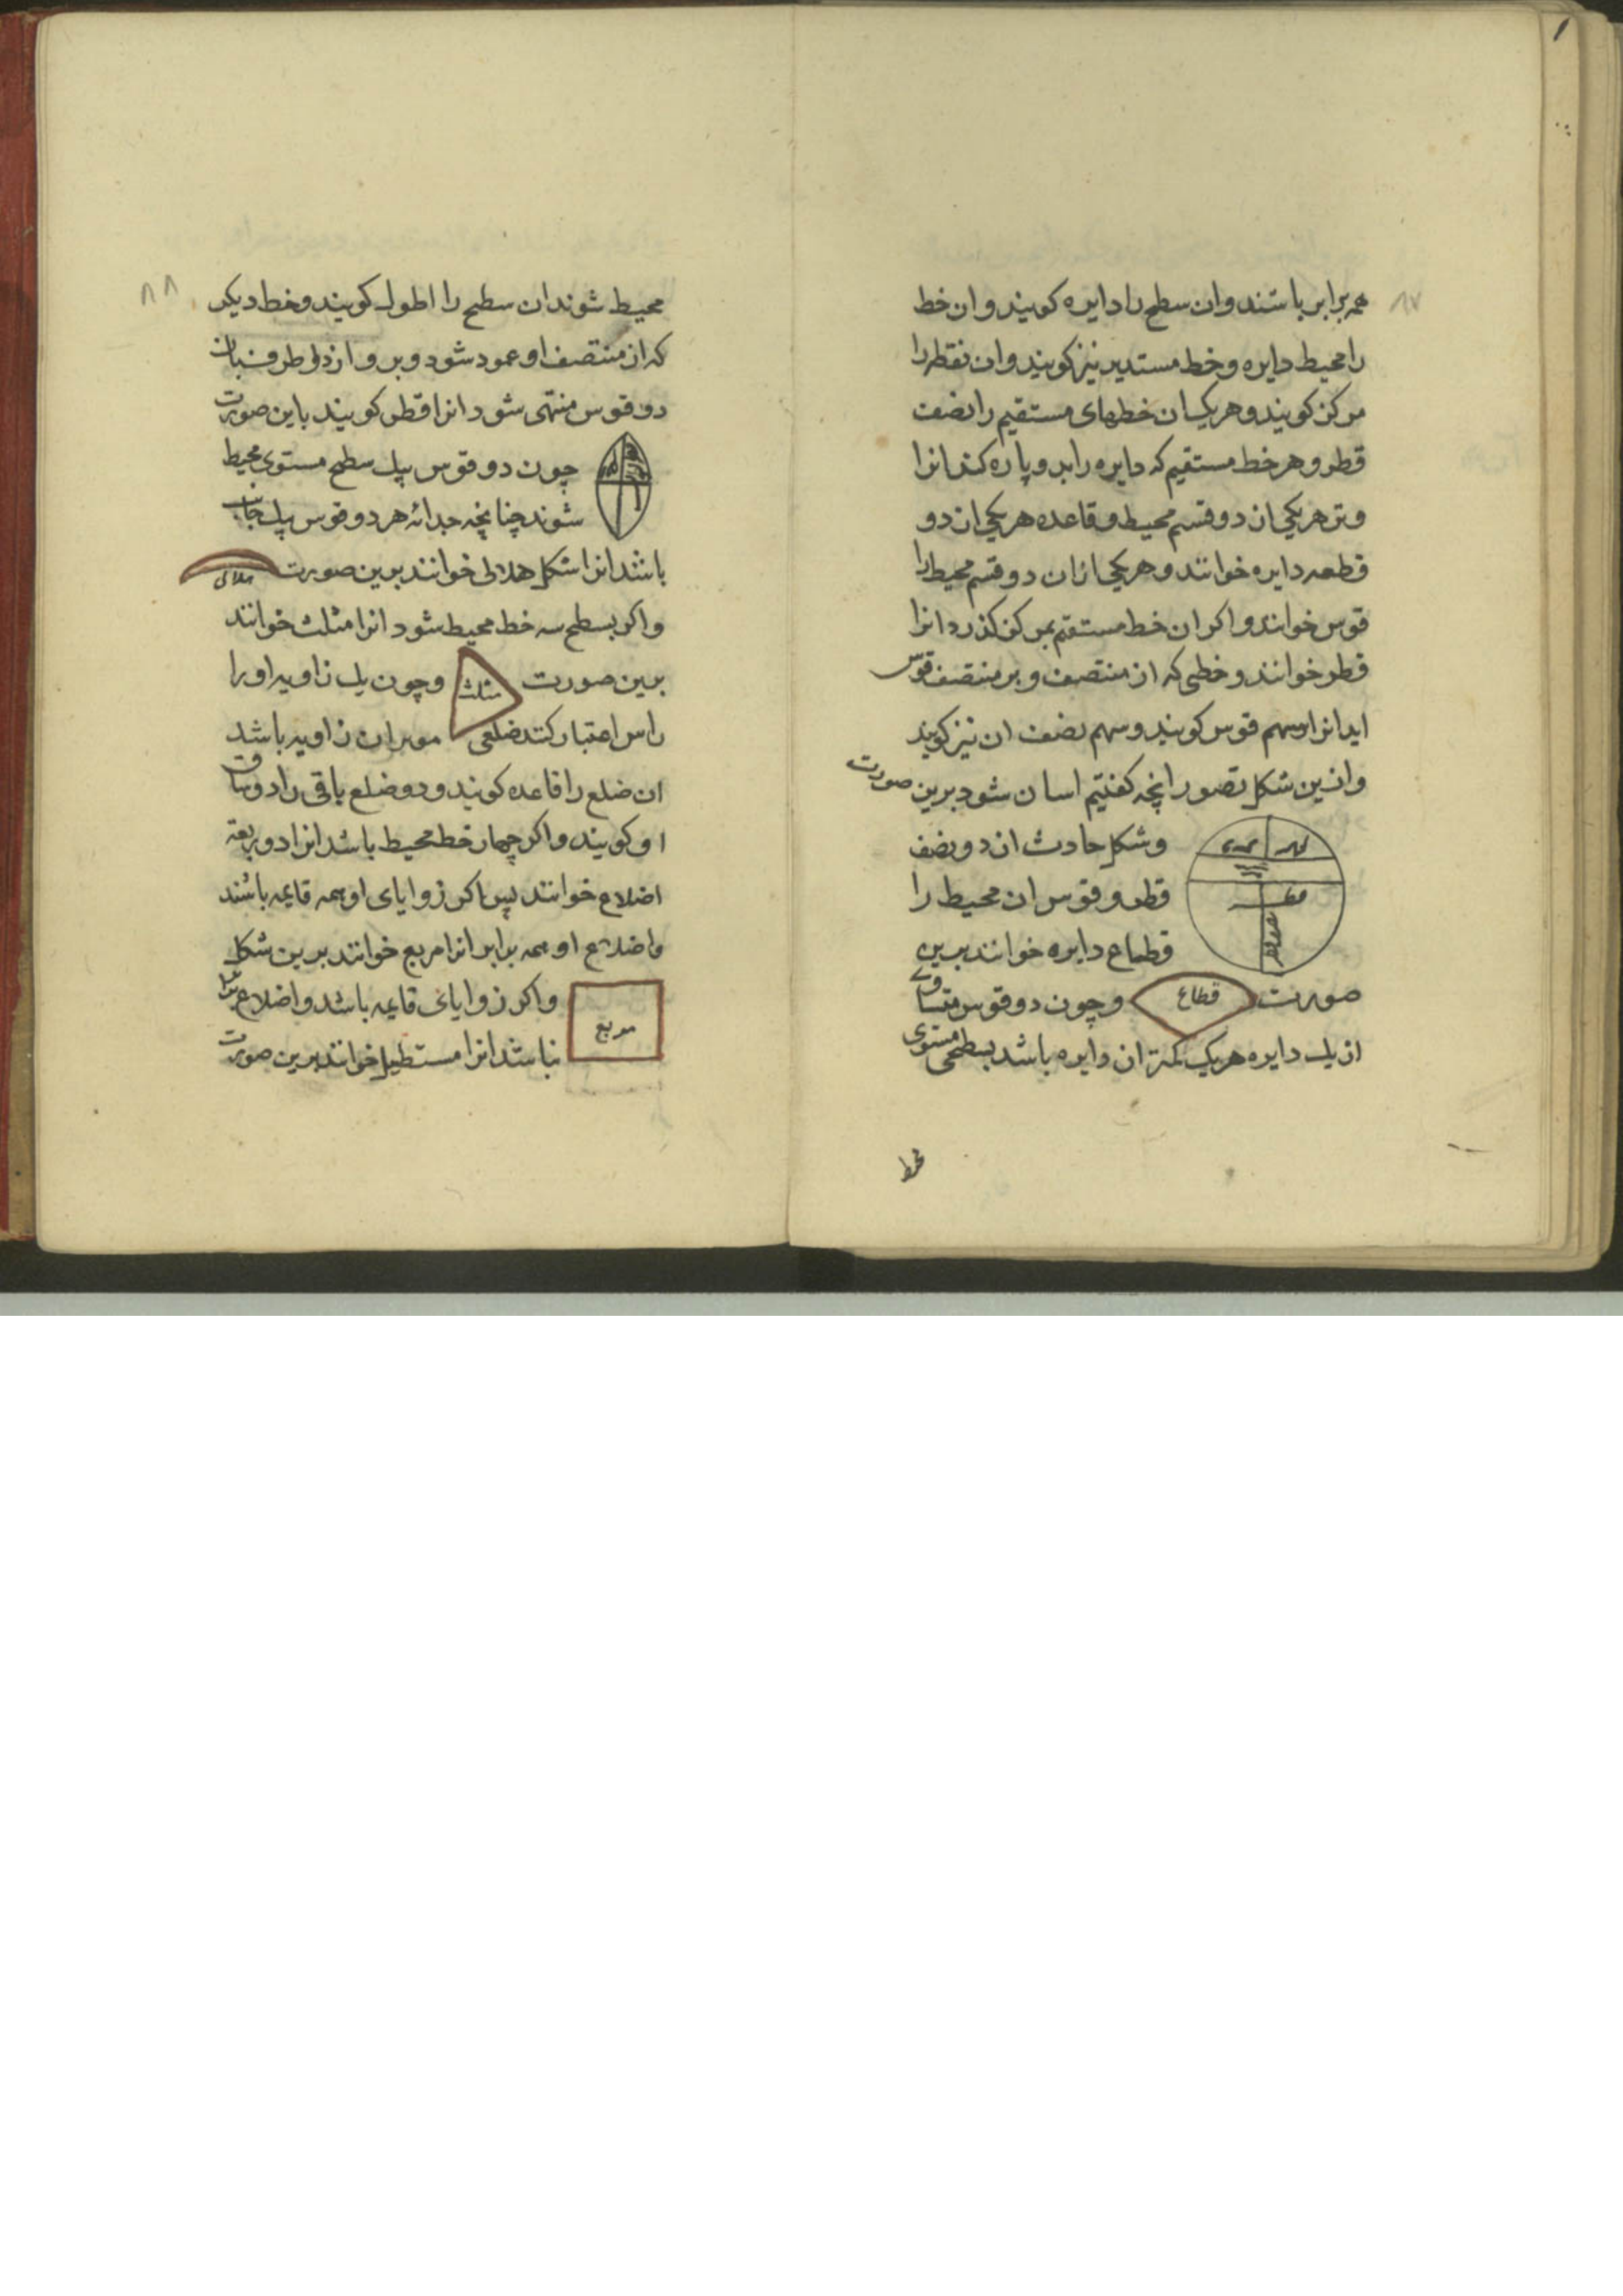 ۸۷
همه برابر باشند وان سطح را دایره کویند وان خط
را محیط دایره و خط مستدیر نیز کویند وان نقطه را
مرکز کویند و هر یک ان خطهای مستقیم را نصف
قطر و هر خط مستقیم که دایره را بدو پاره کند انرا
وتر هر یکی ان دو قسم محیط و قاعده هر یکی ان دو
قطعه دایره خوانند و هر یکی ازان دو قسم محیط را
قوس خوانند و اکر ان خط مستقیم بمرکز کذرد انرا
قطر خوانند و خطی که از منتصف و بر منتصف قوس
اید انرا سهم قوس کویند و سهم نصف ان نیز کویند
وازین شکل تصور انچه کفتیم اسان شود برین صورت
وشکل حادث از دو نصف
قطر و قوس از محیط را
قطاع دایره خوانند برین
صورت قطاع وچون دو قوس متساوی
از یک دایره هر یک کمتر ان دایره باشد بسطحی مستوی
۸۸
محیط شوند ان سطح را اطول کویند و خط دیکر
که از منتصف او عمود شود و بر و از دو طرف بان
دو قوس منتهی شود انرا قطر کویند باین صورت
چون دو قوس بیک سطح مستوی محیط
شوند چنانچه حدانه هر دو قوس یک جانب
باشد انرا شکل هلالی خوانند برین صورت هلالی
واکر بسطح سه خط محیط شود انرا مثلث خوانند
برین صورت مثلث وچون یک زاویه او را
راس اعتبار کنند ضلعی موتر ان زاویه باشد
ان ضلع را قاعده کویند و دو ضلع باقی را دو ساق
او کویند واکر چهار خط محیط باشد انرا ذو اربعة
اضلاع خوانند پس اکر زوایای او همه قایمه باشند
واضلاع او همه برابر انرا مربع خوانند برین شکل
مربع واکر زوایای قایمه باشد و اضلاع برابر
نباشد انرا مستطیل خوانند برین صورت